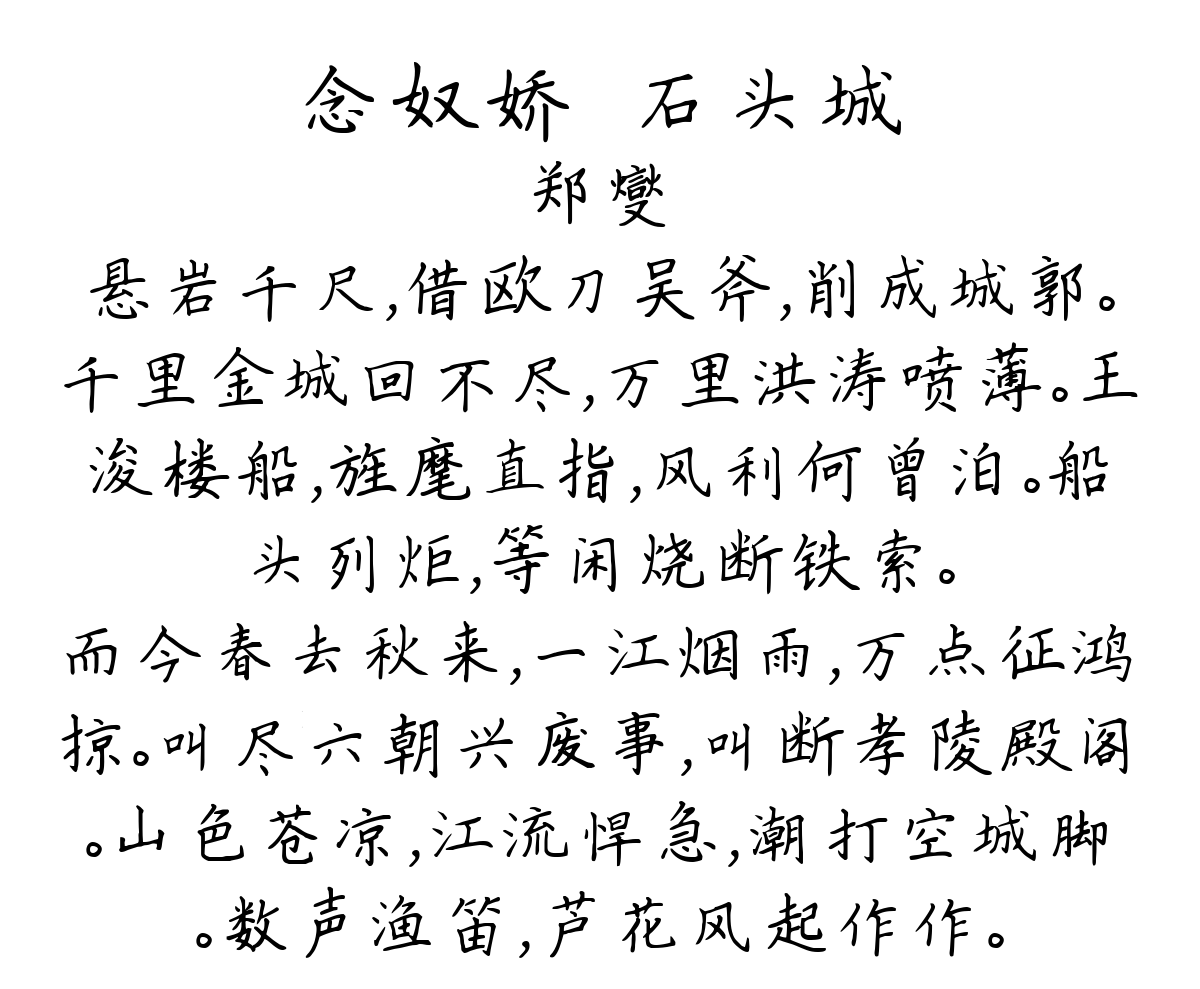 念奴娇 石头城
郑燮
悬岩千尺,借欧刀吴斧,削成城郭。
千里金城回不尽,万里洪涛喷薄。王
浚楼船,旌麾直指,风利何曾泊。船
头列炬,等闲烧断铁索。
而今春去秋来,一江烟雨,万点征鸿
掠。叫尽六朝兴废事,叫断孝陵殿阁
。山色苍凉,江流悍急,潮打空城脚
。数声渔笛,芦花风起作作。